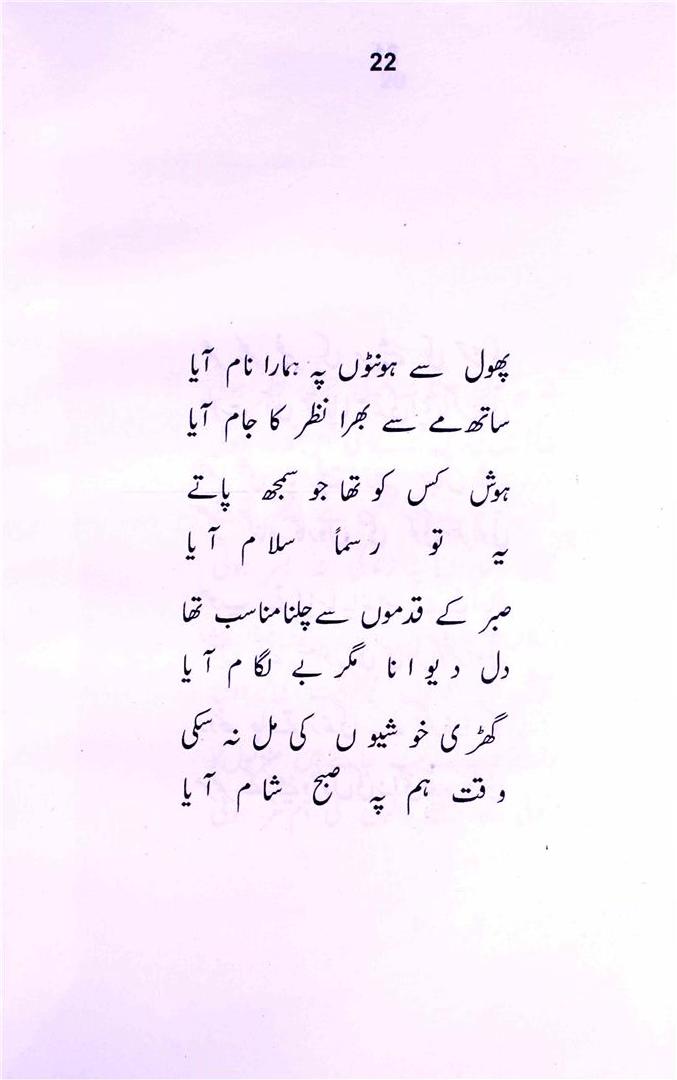 22
پھول سے ہونٹوں پہ ہمارا نام آیا
ساتھ مے سے بھرا نظر کا جام آیا
ہوش کس کو تھا جو سمجھ پاتے
یہ تو رسماً سلام آیا
صبر کے قدموں سے چلنا مناسب تھا
دل دیوانا مگر بے لگام آیا
گھڑی خوشیوں کی مل نہ سکی
وقت ہم پہ صبح شام آیا